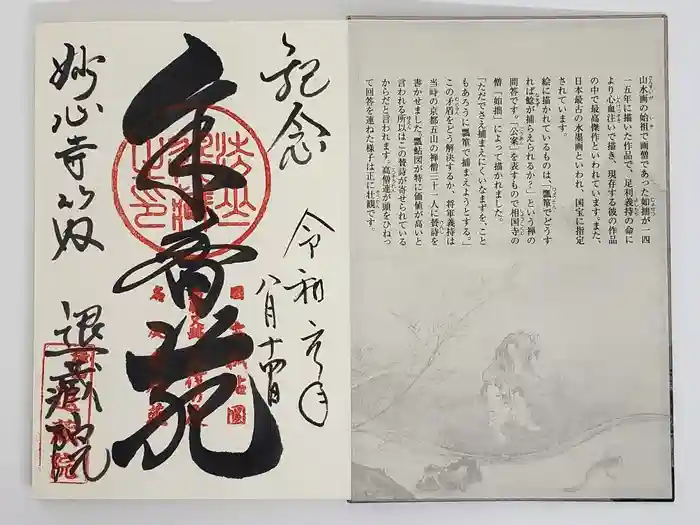 山水画の始祖で画僧であった如拙が一四
一五年に描いた作品で、足利義持の命に
より心血注いで描き、現存する彼の作品
の中で最高傑作といわれています。また、
日本最古の水墨画といわれ、国宝に指定
されています。
絵に描かれているものは、「瓢箪でどうす
れば鯰が捕らえられるか?」という禅の
問答です。「公案」を表すもので相国寺の
僧「如拙」によって描かれました。
「ただでさえ捕まえにくいなまずを、こと
もあろうに瓢箪で捕まえようとする。」
この矛盾をどう解決するか、将軍義持は
当時の京都五山の禅僧三十一人に賛詩を
書かせました。瓢鮎図が特に価値が高いと
言われる所以はこの賛詩が寄せられている
からだと言われます。高僧達が頭をひねっ
て回答を連ねた様子は正に壮観です。
記念
令和六年
八月十四日
余香苑
妙心寺
退蔵院